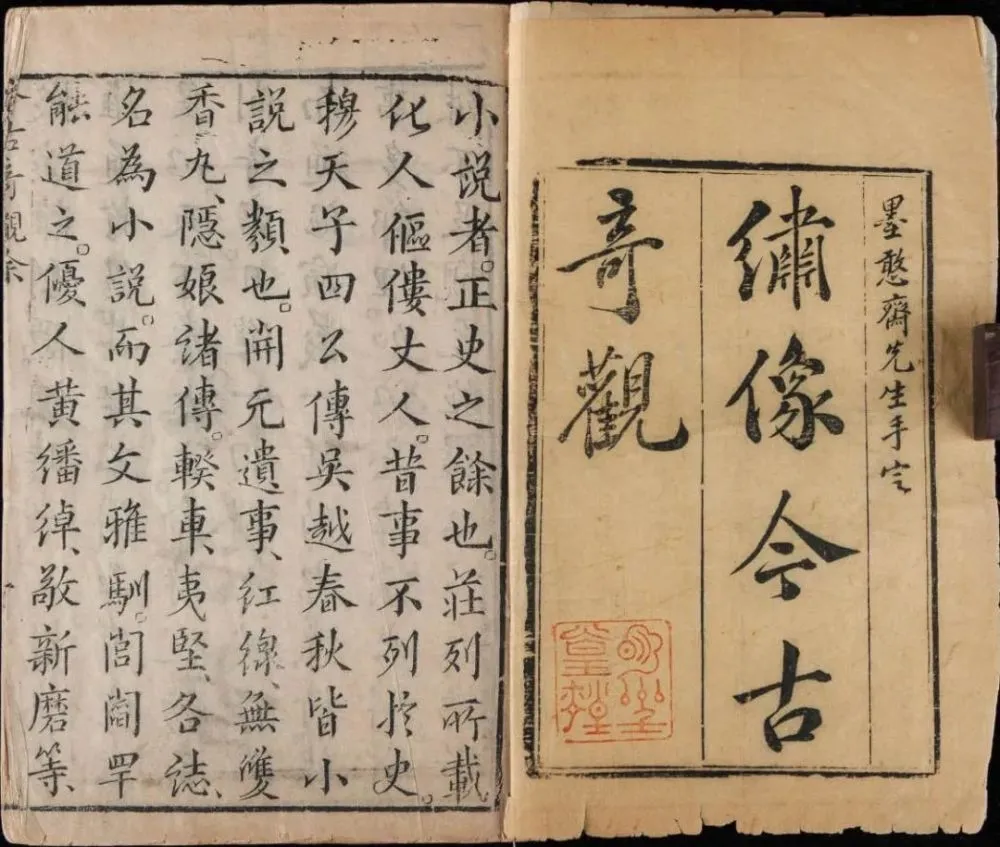 墨憨齋先生手定
繡像今古
奇觀
小説者。正史之餘也。莊列所載
化人傴僂丈人。昔事不列於史。
穆天子四公傳吳越春秋皆小
説之類也。開元遺事、紅線、無雙
香丸、隱娘諸傳。睽車、夷堅、各誌、
名為小説。而其文雅馴。閭閻罕
能道之。優人黃繙綽、敬新磨等、
今古奇觀